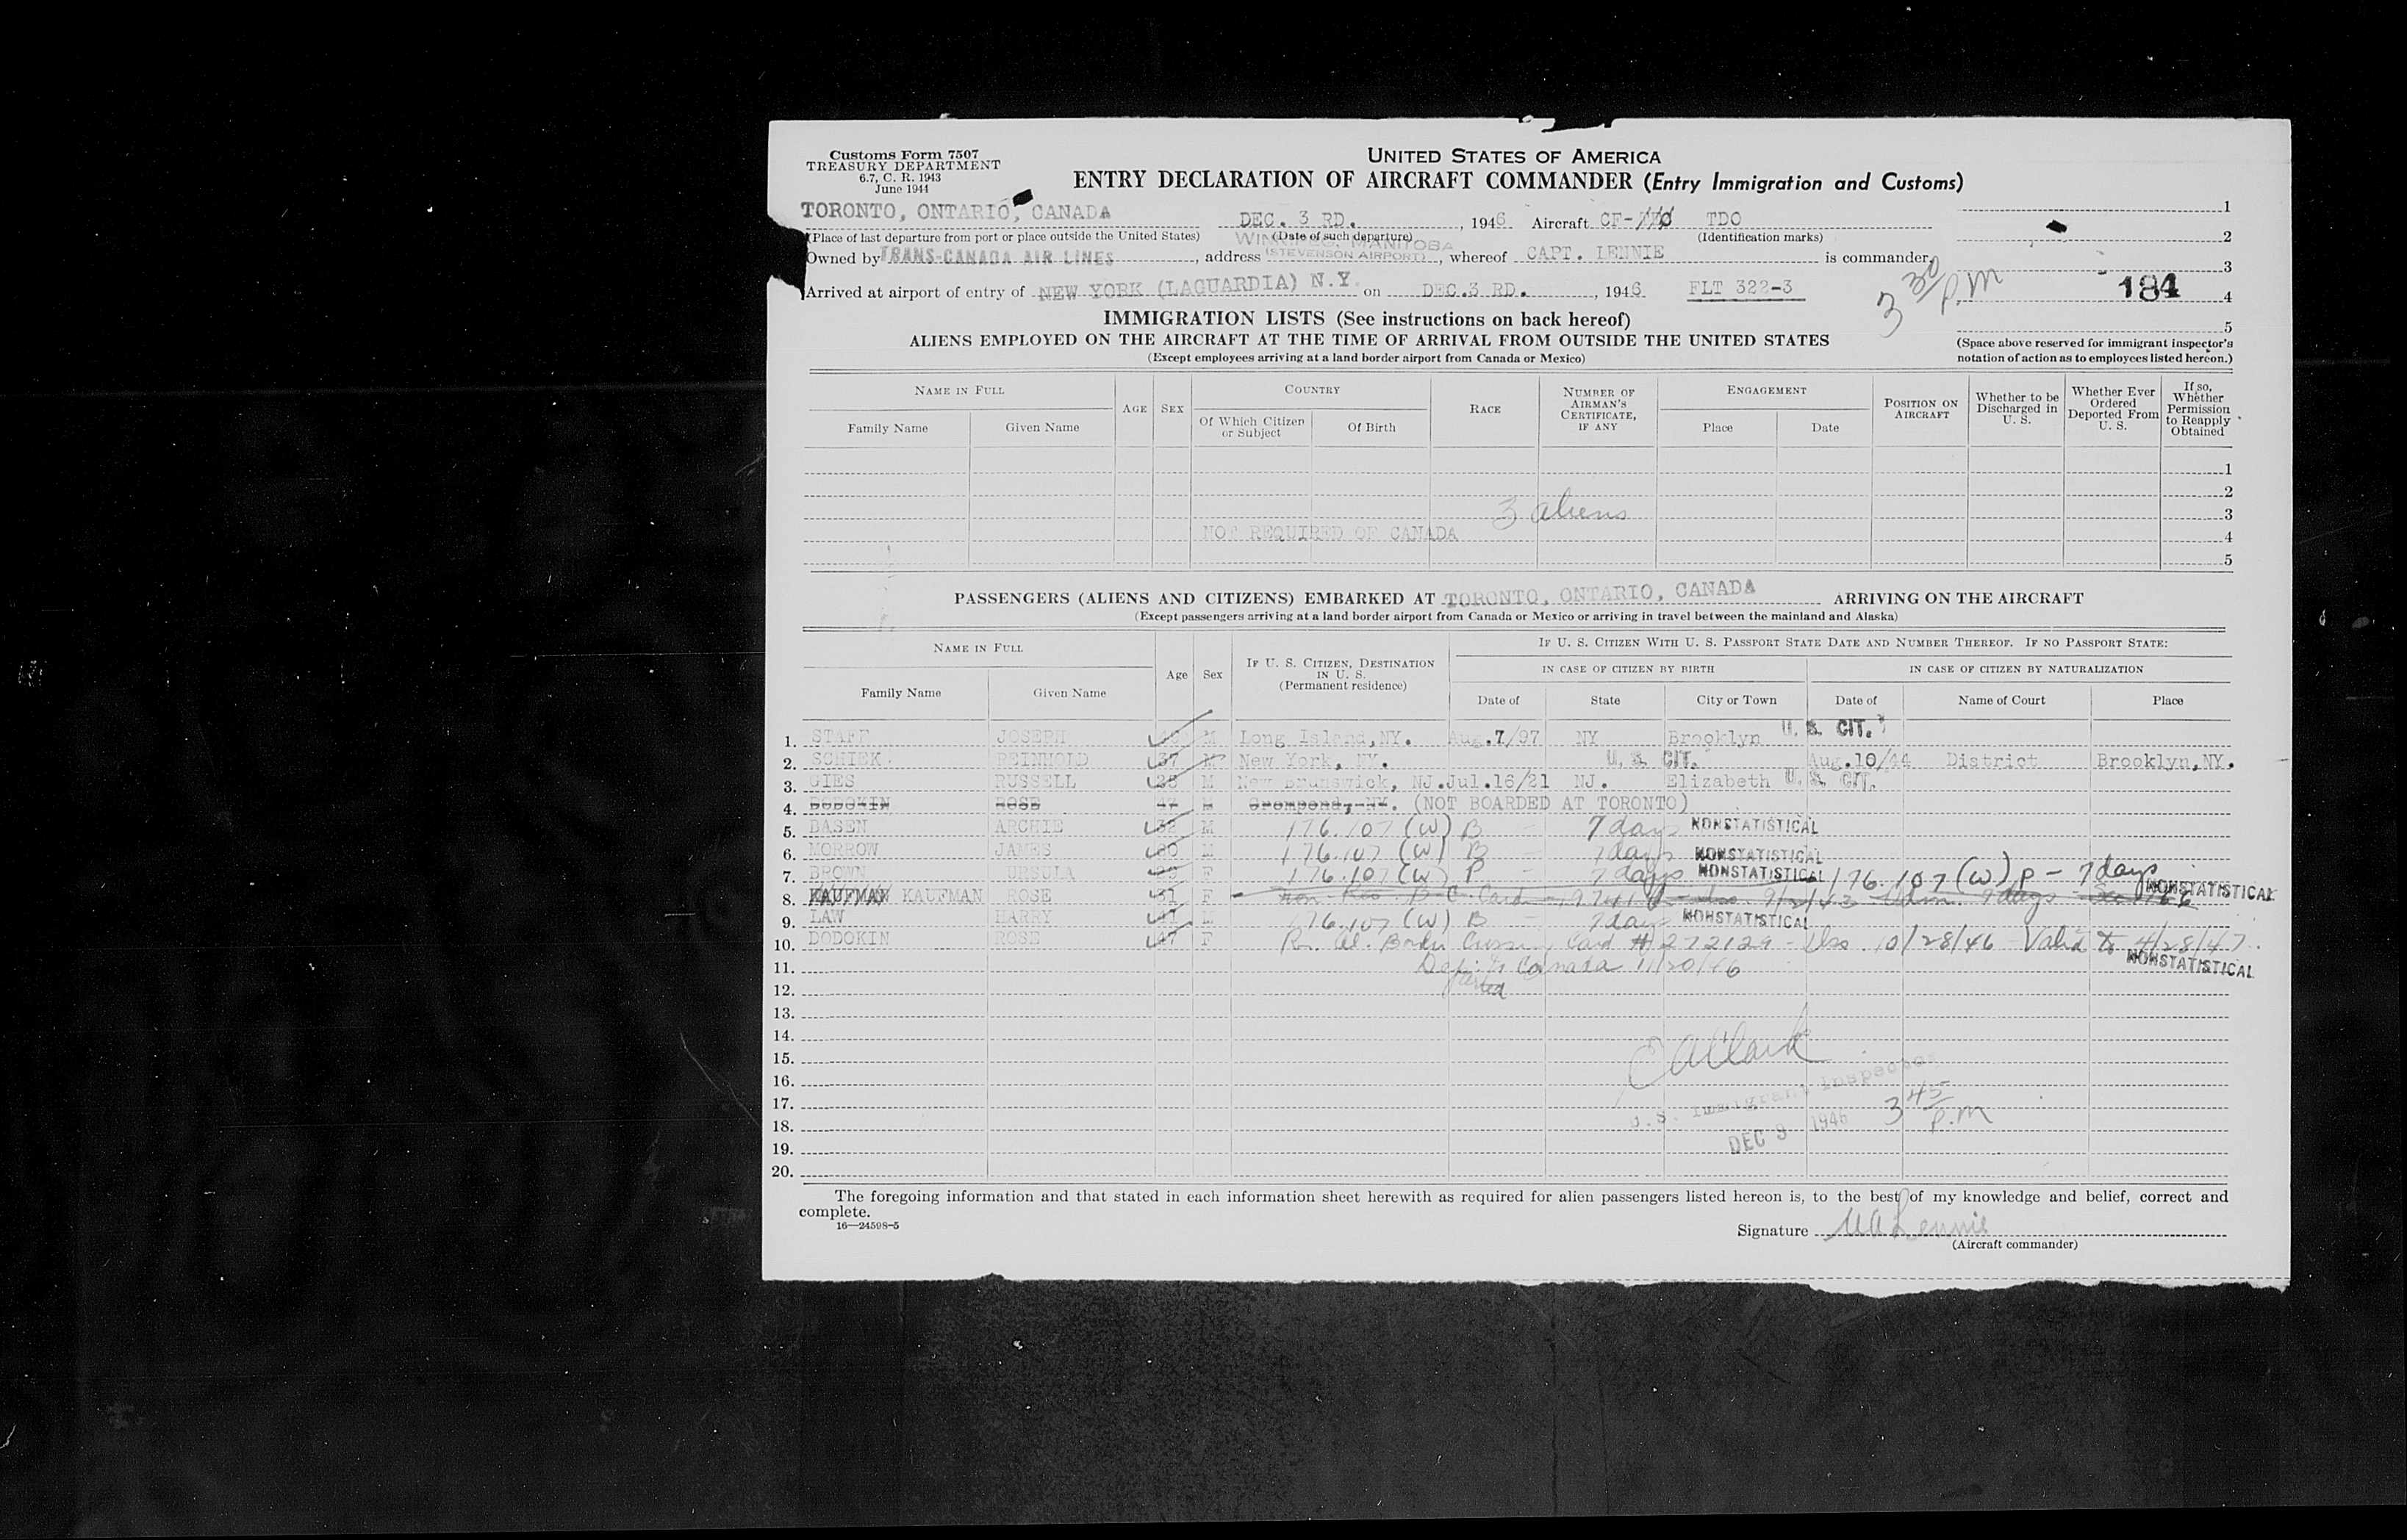 Customs Form 7507
TREASURY DEPARTMENT
6.7, C. R. 1943
June 1944
UNITED STATES OF AMERICA
ENTRY DECLARATION OF AIRCRAFT COMMANDER (Entry Immigration and Customs)
TORONTO, ONTARIO, CANADA DEC. 3 RD., 1946 Aircraft CF- TDO
(Place of last departure from port or place outside the United States) (Date of such departure) (Identification marks)
WINNIPEG, MANITOBA
Owned by TRANS-CANADA AIR LINES, address (STEVENSON AIRPORT), whereof CAPT. LENNIE is commander.
Arrived at airport of entry of NEW YORK (LAGUARDIA) N.Y. on DEC.3 RD., 1946 FLT 322-3
3 30 P.M
184
1
2
3
4
5
(Space above reserved for immigrant inspector's notation of action as to employees listed hereon.)
IMMIGRATION LISTS (See instructions on back hereof)
ALIENS EMPLOYED ON THE AIRCRAFT AT THE TIME OF ARRIVAL FROM OUTSIDE THE UNITED STATES
(Except employees arriving at a land border airport from Canada or Mexico)
NAME IN FULL AGE SEX COUNTRY RACE NUMBER OF AIRMAN'S CERTIFICATE, IF ANY ENGAGEMENT POSITION ON AIRCRAFT Whether to be Discharged in U. S. Whether Ever Ordered Deported From U. S. If so, Whether Permission to Reapply Obtained
Family Name Given Name Of Which Citizen or Subject Of Birth Place Date
1
2
3 aliens 3
NOT REQUIRED OF CANADA 4
5
PASSENGERS (ALIENS AND CITIZENS) EMBARKED AT TORONTO, ONTARIO, CANADA ARRIVING ON THE AIRCRAFT
(Except passengers arriving at a land border airport from Canada or Mexico or arriving in travel between the mainland and Alaska)
NAME IN FULL Age Sex IF U. S. CITIZEN, DESTINATION IN U. S. (Permanent residence) IF U. S. CITIZEN WITH U. S. PASSPORT STATE DATE AND NUMBER THEREOF. IF NO PASSPORT STATE:
IN CASE OF CITIZEN BY BIRTH IN CASE OF CITIZEN BY NATURALIZATION
Family Name Given Name Date of State City or Town Date of Name of Court Place
1. STAFF JOSEPH M Long Island, NY. Aug.7/97 NY Brooklyn U. S. CIT.
2. SCHIEK REINHOLD 37 M New York, NY. U. S. CIT. Aug.10/44 District Brooklyn, NY.
3. GIES RUSSELL M New Brunswick, NJ. Jul.16/21 NJ. Elizabeth U. S. CIT.
4. DODOKIN ROSE 47 (NOT BOARDED AT TORONTO)
5. BASEN ARCHIE 32 M 176.107 (W) B 7 days NONSTATISTICAL
6. MORROW JAMES M 176.107 (W) B 7 days NONSTATISTICAL
7. BROWN URSULA F 176.107 (W) P 7 days NONSTATISTICAL 176.107 (W) P - 7 days
8. KAUFMAN KAUFMAN ROSE 31 F NONSTATISTICAL
9. LAW HARRY 41 M 176.107 (W) B 7 days NONSTATISTICAL
10. DODOKIN ROSE 47 F Border Crossing Card # 272129 - Iss. 10/28/46 Valid to 4/28/47.
11. to Canada 11/20/46 NONSTATISTICAL
12.
13.
14.
15.
16.
17.
18.
19.
20.
U. S. Immigrant Inspector
3 45 P.M
DEC 3 1946
The foregoing information and that stated in each information sheet herewith as required for alien passengers listed hereon is, to the best of my knowledge and belief, correct and
complete.
16—24598-5
Signature Lennie
(Aircraft commander)